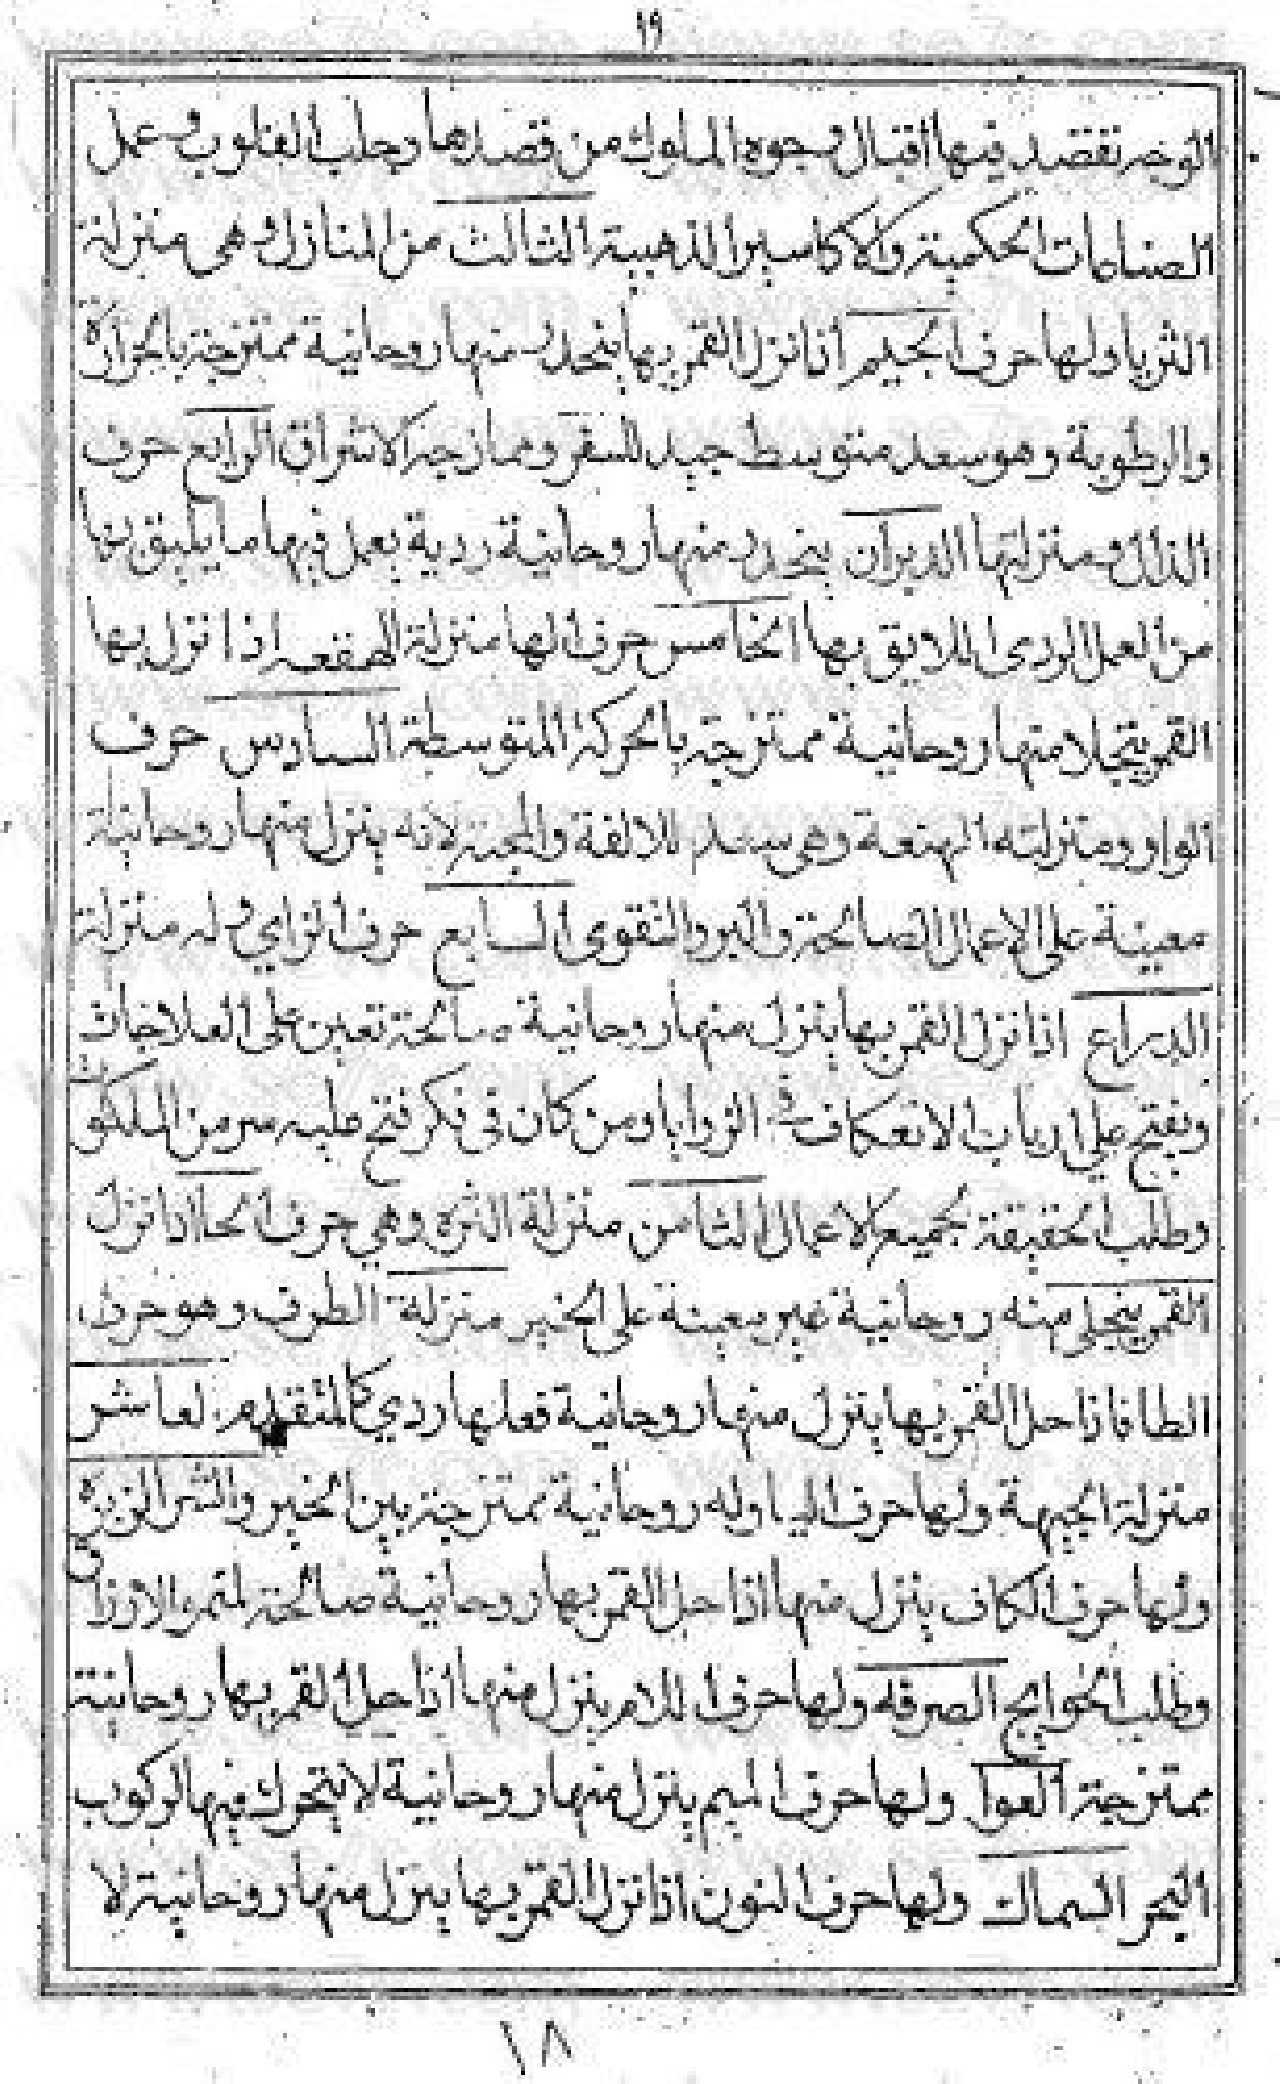 ١٩
الوجه تقصد فيها اقبال وجوه الملوك من قصدها وجلب القلوب وعمل
الصناعات الحكمية والاكاسير الذهبية الثالث من المنازل وهى منزلة
الثريا ولها حرف الجيم اذا نزل القمر بها ينحدر منها روحانية ممتزجة بالحرارة
والرطوبة وهو سعد متوسط جيد للسفر وممازجة الاشراق الرابع حرف
الدال ومنزلتها الدبران ينحدر منها روحانية ردية يعمل فيها ما يليق بها
من العمل الردى اللايق بها الخامس حرف الها منزلة الهقعه اذا نزل بها
القمر يتجلا منها روحانية ممتزجة بالحركة المتوسطة السادس حرف
الواو ومنزلته الهنعة وهى سعد للالفة والمحبة لانه ينزل منها روحانية
معينة على الاعمال الصالحة والبر والتقوى السابع حرف الزاي وله منزلة
الدراع اذا نزل القمر بها ينزل منها روحانية صالحة تعين على العلاجات
ويفتح على ارباب الاعتكاف فى الزوايا ومن كان فى فكر فتح عليه سر من الملكوت
وطلب الحقيقة لجميع الاعمال الثامن منزلة النثرة وهي حرف الحا اذا نزل
القمر يتجلى منه روحانية غير معينة على الخير منزلة الطرف وهو حرف
الطا فاذا حل القمر بها ينزل منها روحانية فعلها ردي كالمتقدم لعاشر
منزلة الجبهة ولها حرف اليا وله روحانية ممتزجة بين الخير والشر الزبرة
ولها حرف الكاف ينزل منها اذا حل القمر بها روحانية صالحة لنمو الارزاق
وطلب الحوايج الصرفه ولها حرف اللام ينزل منها اذا حل القمر بها روحانية
ممتزجة العوا ولها حرف الميم ينزل منها روحانية لا يتحرك فيها لركوب
البحر السماك ولها حرف النون اذا نزل القمر بها ينزل منها روحانية لا
١٨